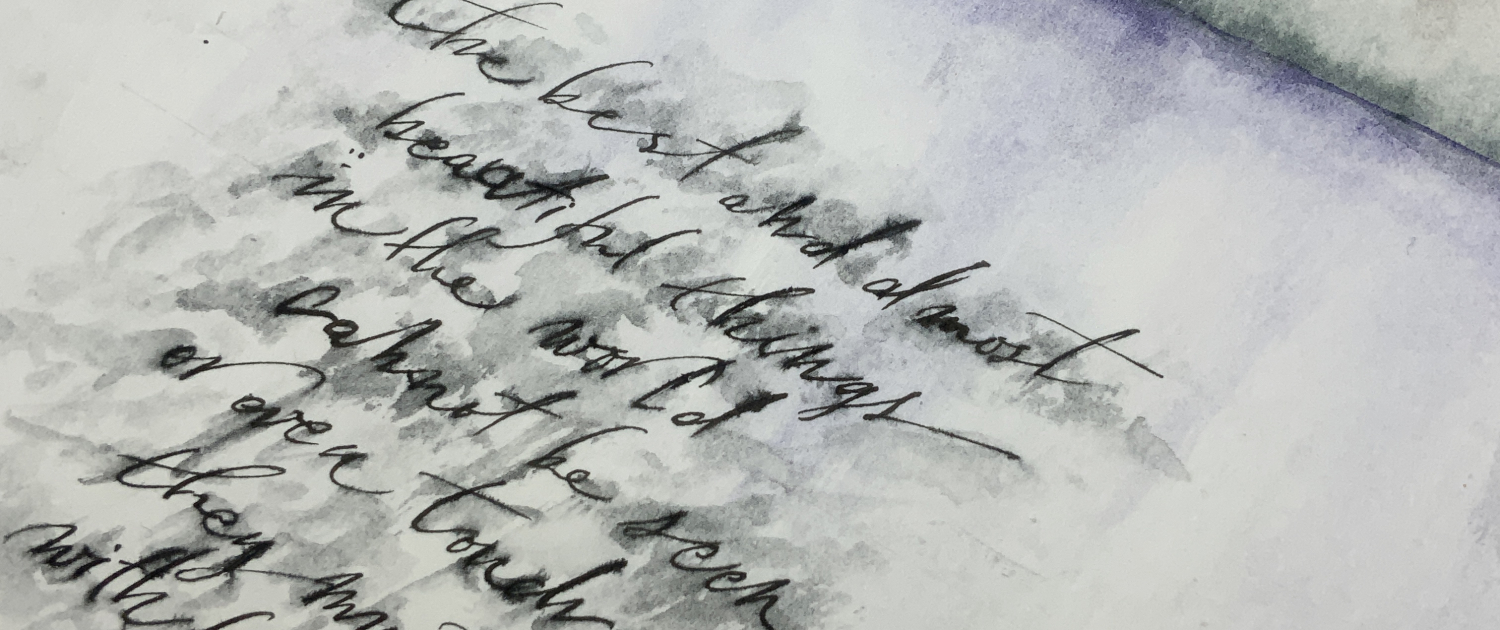 the best and almost
beautiful things
in the world
cannot be seen
or even touch
they
with